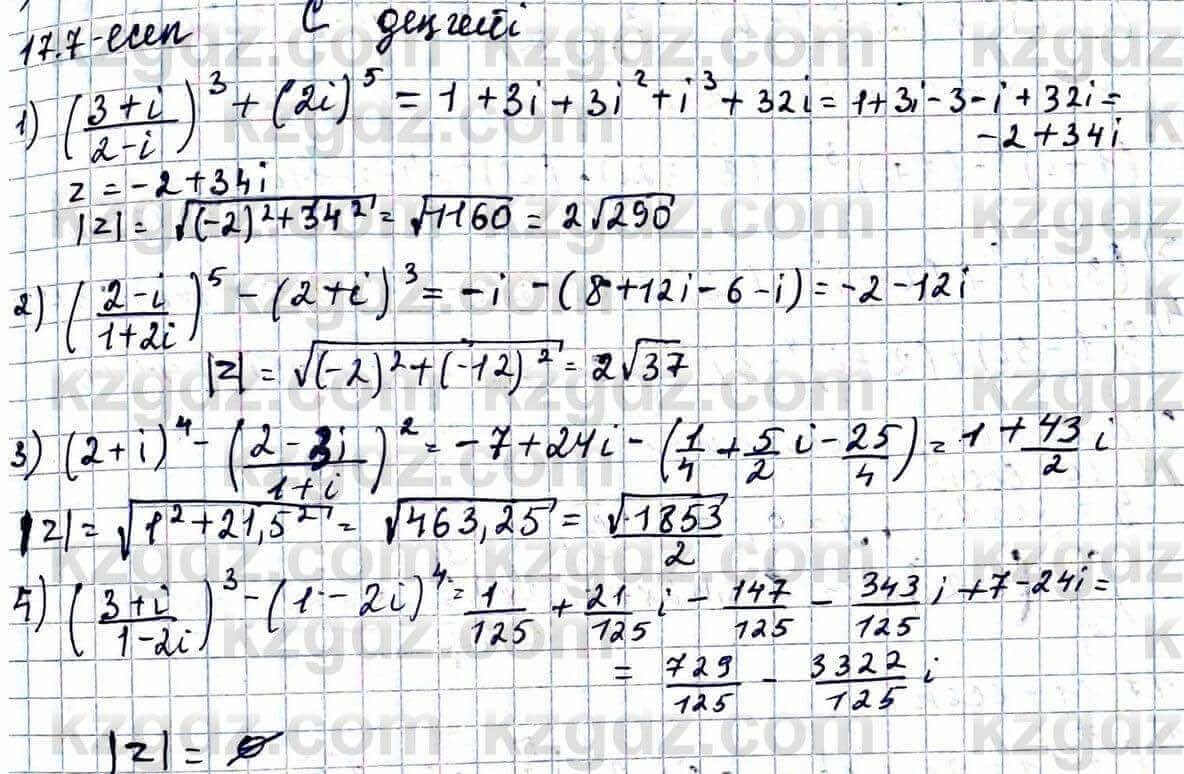 17.7-есеп С деңгейі
1) ((3+i)/(2-i))³ + (2i)⁵ = 1+3i+3i²+i³+32i = 1+3i-3-i+32i =
-2+34i
z = -2+34i
|z| = √((-2)²+34²) = √1160 = 2√290
2) ((2-i)/(1+2i))⁵ - (2+i)³ = -i - (8+12i-6-i) = -2-12i
|z| = √((-2)²+(-12)²) = 2√37
3) (2+i)⁴ - ((2-3i)/(1+i))² = -7+24i - (1/4 + 5/2 i - 25/4) = -1 + 43/2 i
|z| = √(1²+21,5²) = √463,25 = √1853/2
4) ((3+i)/(1-2i))³ - (1-2i)⁴ = 1/125 + 21/125 i - 147/125 - 343/125 i + 7-24i =
= 729/125 - 3322/125 i
|z| =
kzgdz.com